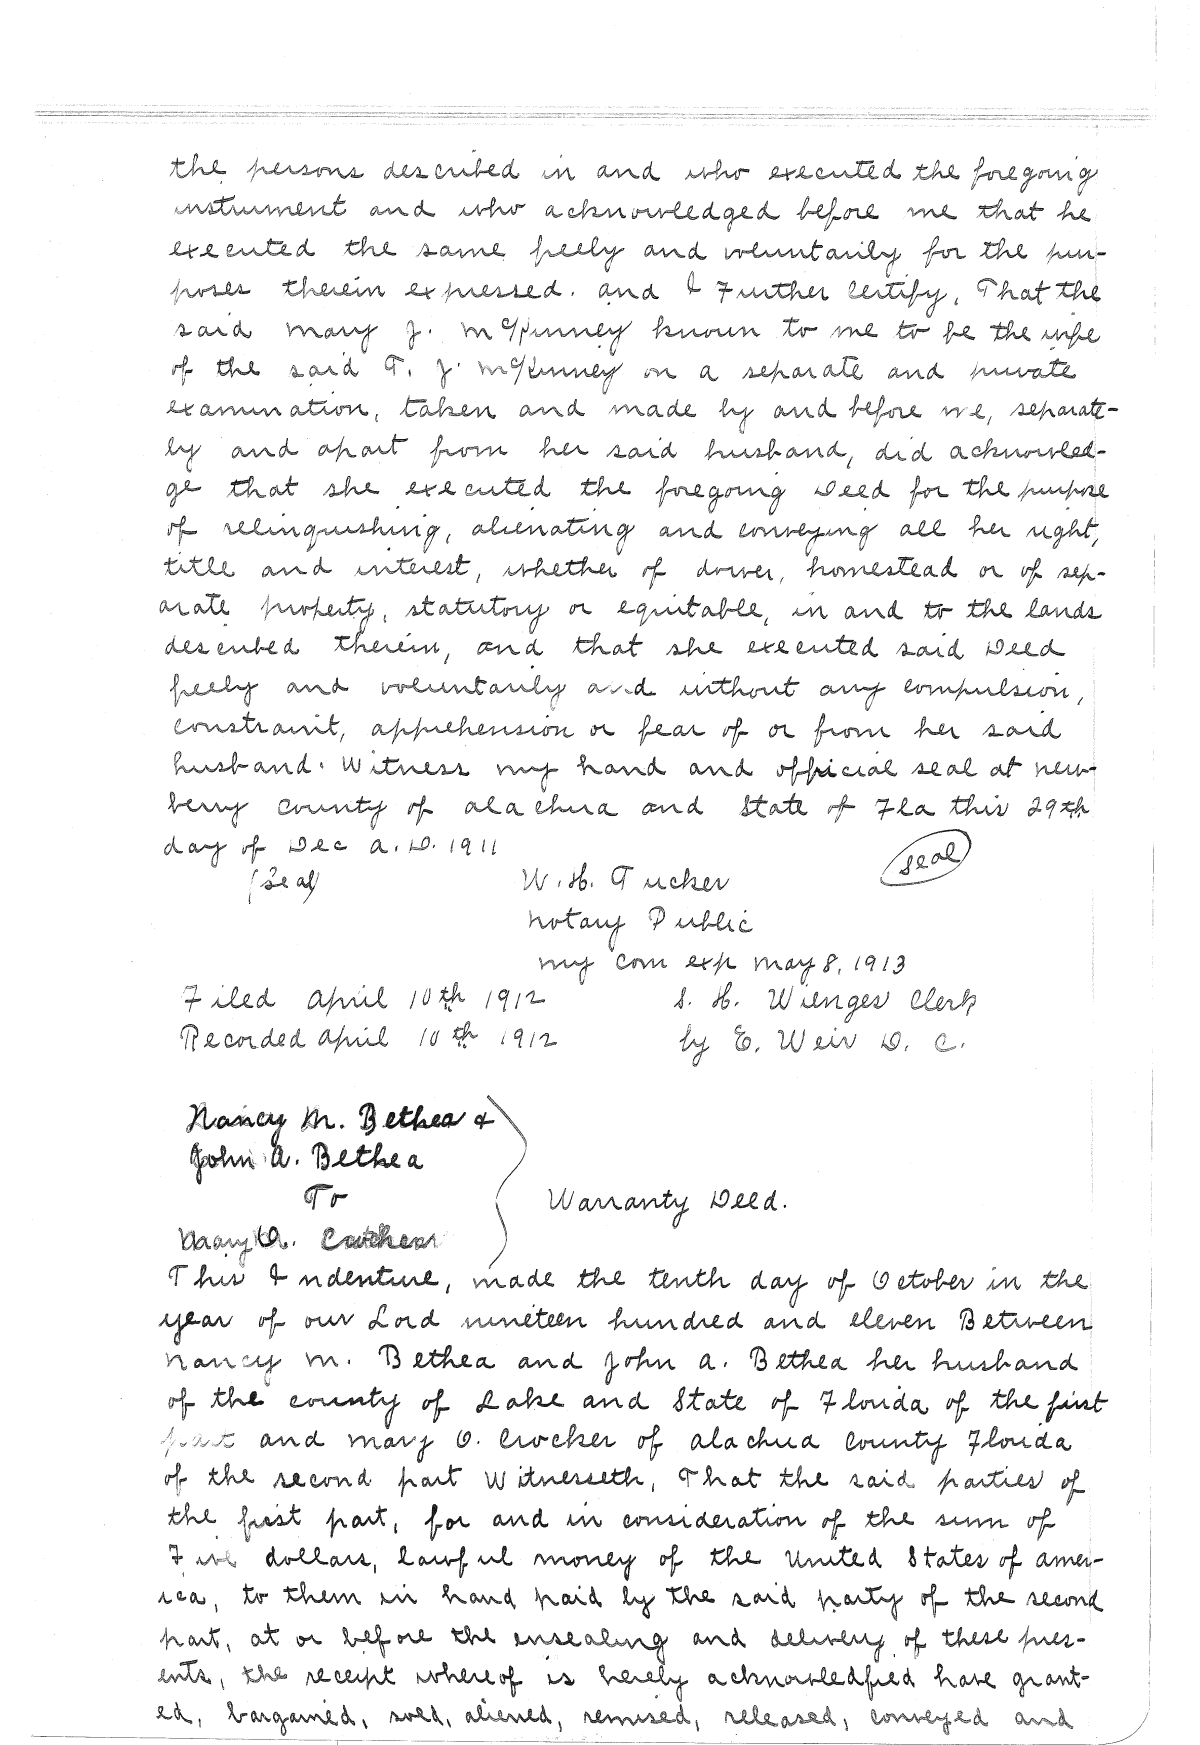 the persons described in and who executed the foregoing
instrument and who acknowledged before me that he
executed the same freely and voluntarily for the pur-
poses therein expressed. and I Further Certify, That the
said Mary J. McKinney known to me to be the wife
of the said T. J. McKinney on a separate and private
examination, taken and made by and before me, separate-
ly and apart from her said husband, did acknowled-
ge that she executed the foregoing Deed for the purpose
of relinquishing, alienating and conveying all her right,
title and interest, whether of dower, homestead or of sep-
arate property, statutory or equitable, in and to the lands
described therein, and that she executed said Deed
freely and voluntarily and without any compulsion,
constraint, apprehension or fear of or from her said
husband. Witness my hand and official seal at New-
berry County of Alachua and State of Fla this 29th
day of Dec A.D. 1911
(Seal) W. H. Tucker (Seal)
Notary Public
my com exp May 8, 1913
Filed April 10th 1912 S. H. Wienges Clerk
Recorded April 10th 1912 by E. Weir D. C.
Nancy M. Bethea &
John A. Bethea
To Warranty Deed.
Mary O.
This Indenture, made the tenth day of October in the
year of our Lord nineteen hundred and eleven Between
Nancy M. Bethea and John A. Bethea her husband
of the county of Lake and State of Florida of the first
part and Mary O. Crocker of Alachua County Florida
of the second part Witnesseth, That the said parties of
the first part, for and in consideration of the sum of
Five dollars, lawful money of the United States of Amer-
ica, to them in hand paid by the said party of the second
part, at or before the ensealing and delivery of these pres-
ents, the receipt whereof is hereby acknowledged have grant-
ed, bargained, sold, aliened, remised, released, conveyed and